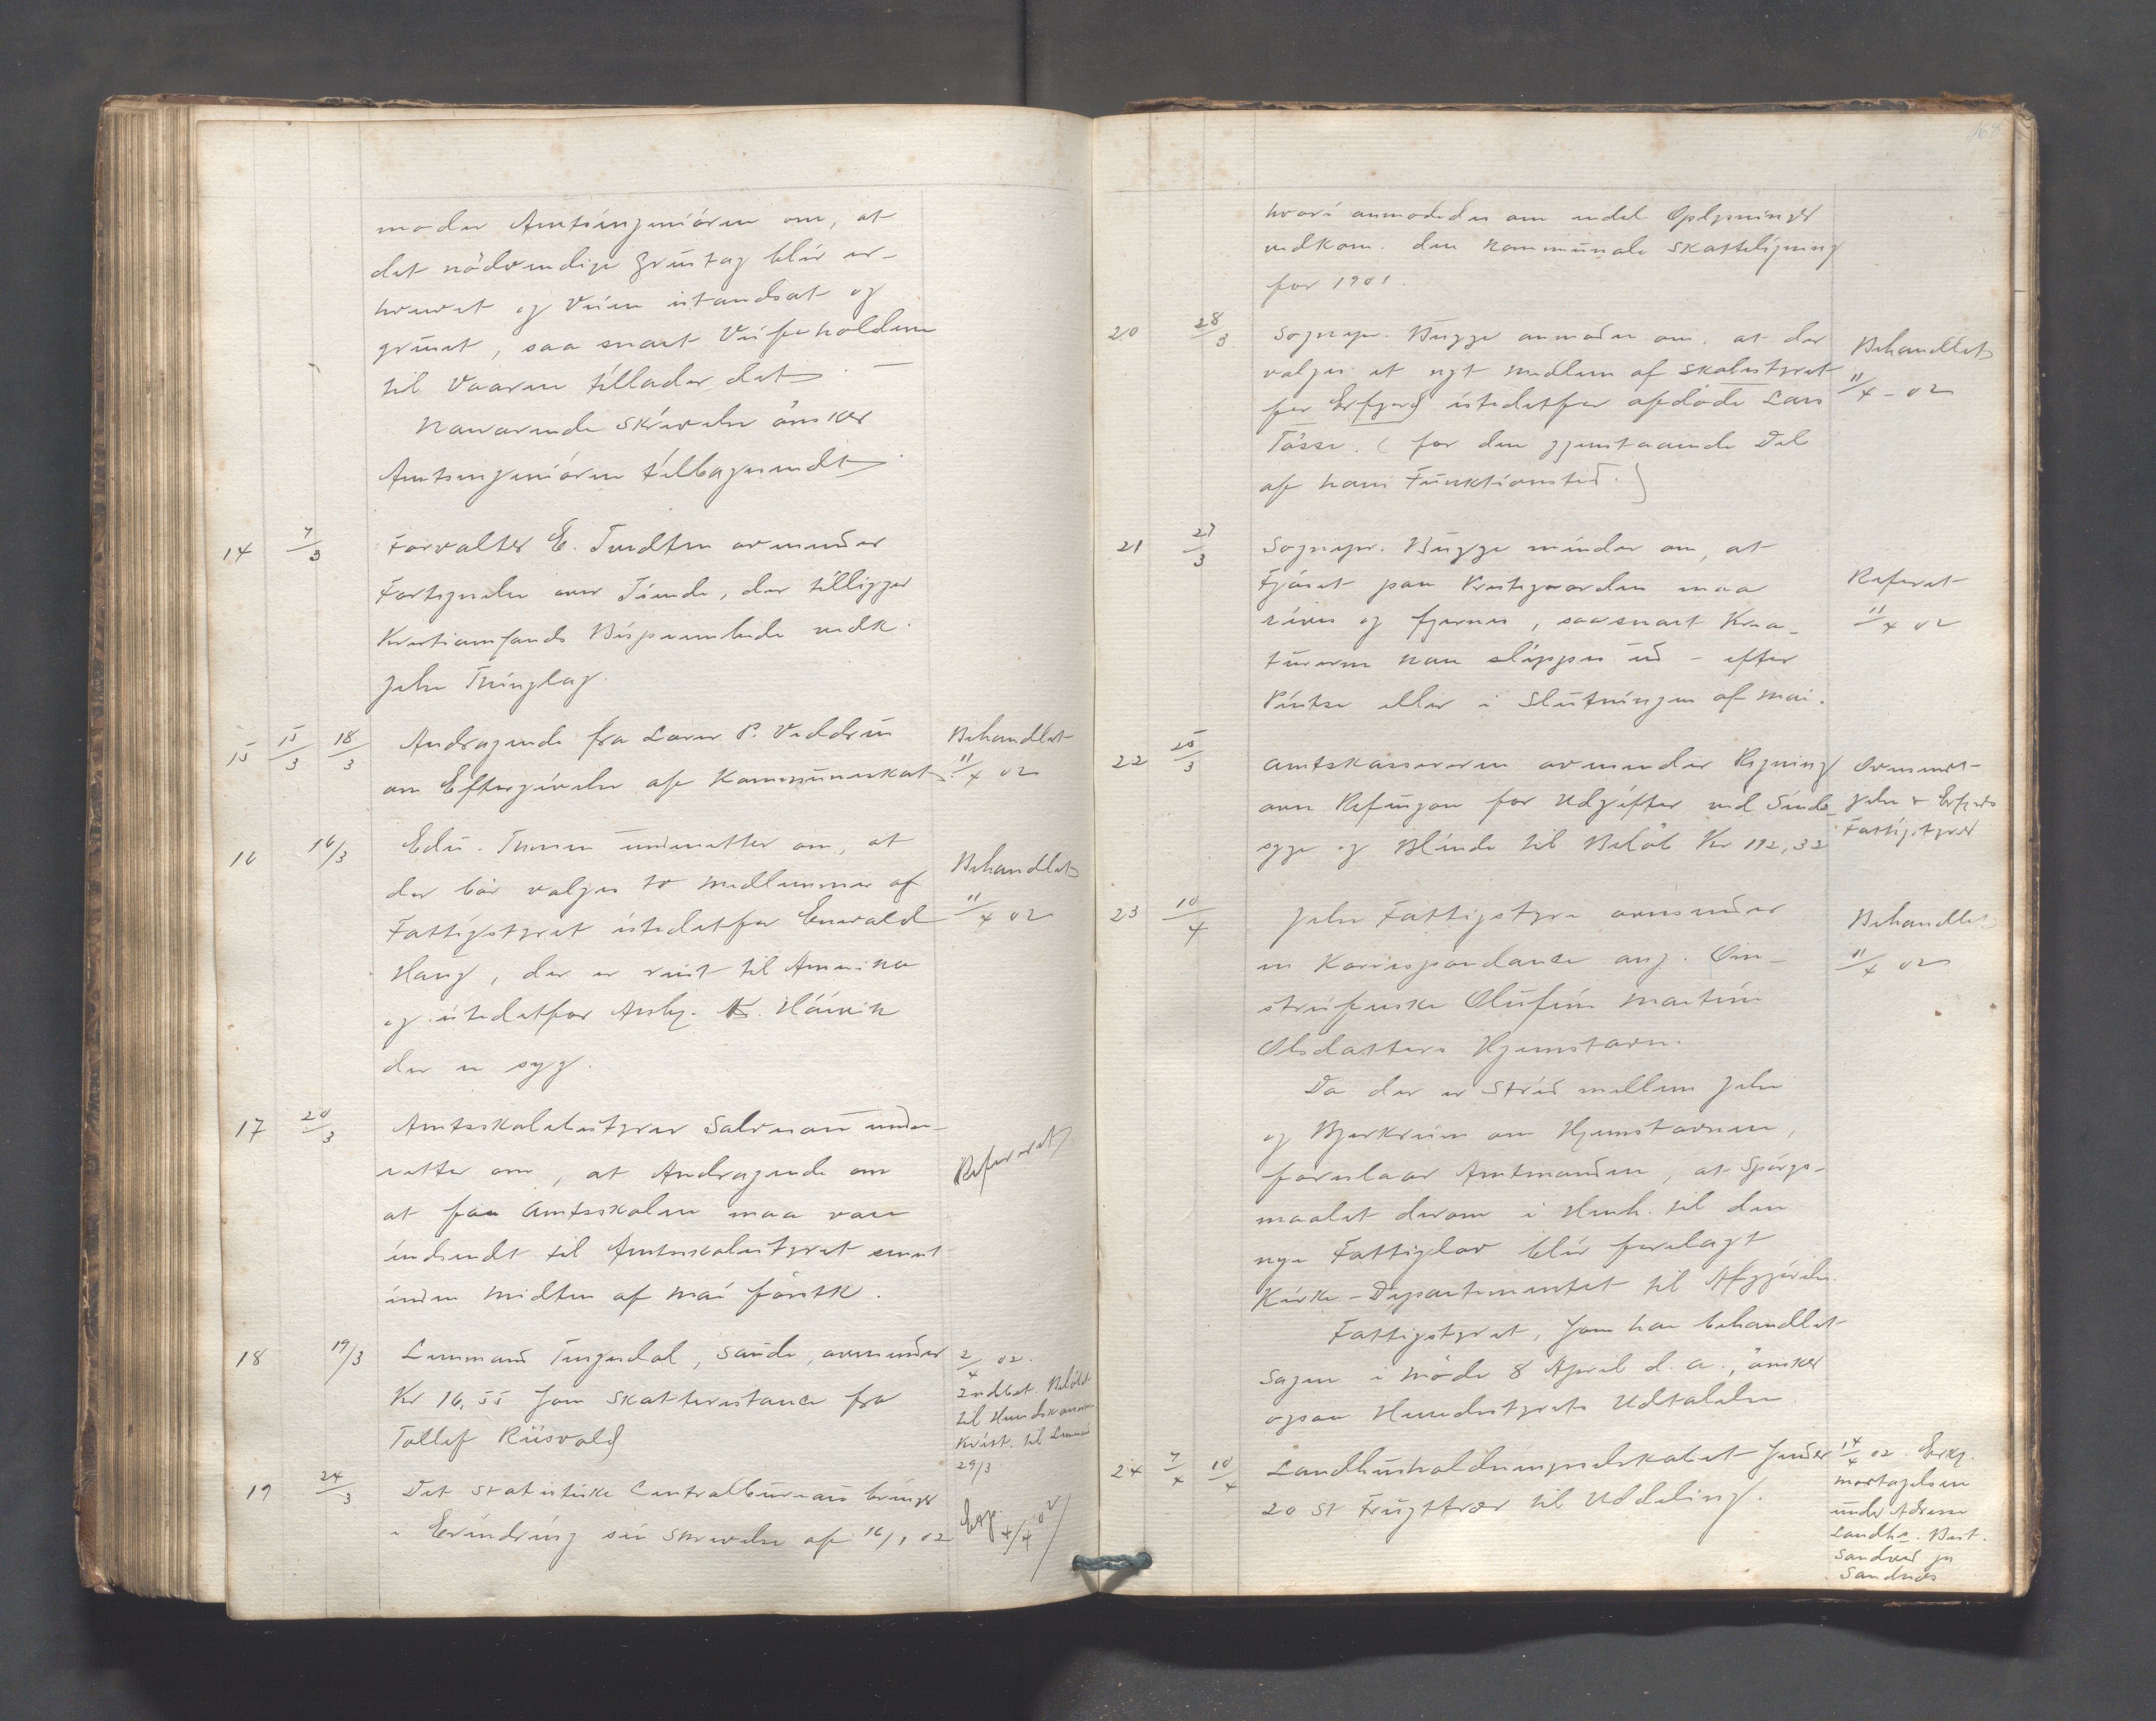 moder Amtsingeniøren om, at
det nødvendige Grustag blir er-
hvervet og Veien istandsat og
gruset, saa snart Veiforholdene
til Vaaren tillader det. —
Nærværende Skrivelse ønskes
Amtsingeniøren tilbagesendt.
14 7/3 Forvalter E. Tvedten oversender
Fortegnelse over Tiende, der tilligger
Kristiansands Bispeembede vedk.
Jelse Thinglag.
15 15/3 18/3 Andragende fra Lærer P. Veddren
om Eftergivelse af Kommuneskat
Behandlet
11/4 02
16 16/3 Edv. Thorsen underretter om, at
der bør vælges to Medlemmer af
Fattigstyret istedetfor Enevald
Haug, der er reist til Amerika
og istedetfor Asbj. K. Håvik
der er syg.
Behandlet
11/4 02
17 20/3 Amtsskolebestyrer Salvesen under-
retter om, at Andragende om
at faa Amtsskolen maa være
indsendt til Amtsskolestyret senest
inden Midten af Mai førstk.
Refereret
18 19/3 Lensmand Tengesdal, Saude, oversender
Kr 16,55 som Skatterestance fra
Tollef Riisvold
2/4 02.
Indbet. Beløbet
til Herredskasserer
Kvitt. til Lensmand
29/3
19 24/3 Det statistiske Centralbureau bringer
i Erindring sin Skrivelse af 16/1 02
Exp. 4/4 02
168
hvori anmodedes om endel Oplysninger
vedkom. den kommunale Skatteligning
for 1901.
20 28/3 Sognepr. Bugge anmoder om, at der
vælges et nyt Medlem af Skolestyret
for Erfjord istedetfor afdøde Lars
Tøsse. (for den gjenstaaende Del
af hans Funktionstid.)
Behandlet
11/4 – 02
21 27/3 Sognepr. Bugge minder om, at
Fjøset paa Prestegaarden maa
rives og fjernes, saasnart Krea-
turerne kan slippes ud – efter
Pintse eller i Slutningen af Mai.
Referet
11/4 02
22 25/3 Amtskassereren oversender Regning
over Refusjon for Udgifter ved Sinds-
syge og Blinde til Beløb Kr 192,32
Oversendt
Jelse & Erfjords
Fattigstyrer
23 10/4 Jelse Fattigstyre oversender
en Korrespondance ang. Om-
streiferske Olufine Martine
Olsdatters Hjemstavn.
Da der er Strid mellem Jelse
og Bjerkreim om Hjemstavnen,
foreslaar Amtmanden, at Spørgs-
maalet derom i Henh. til den
nye Fattiglov blir forelagt
Kirke-Departementet til Afgjørelse.
Fattigstyret, som har behandlet
Sagen i Møde 8 April d. a., ønsker
ogsaa Herredstyrets Udtalelse.
Behandlet
11/4 02
24 7/4 10/4 Landhusholdningsselskabet sender
20 St Frugttrær til Uddeling.
14/4 02. Erkj.
mortagelsen
under Adresse
Landhs. Best.
Sandved pr
Sandnes